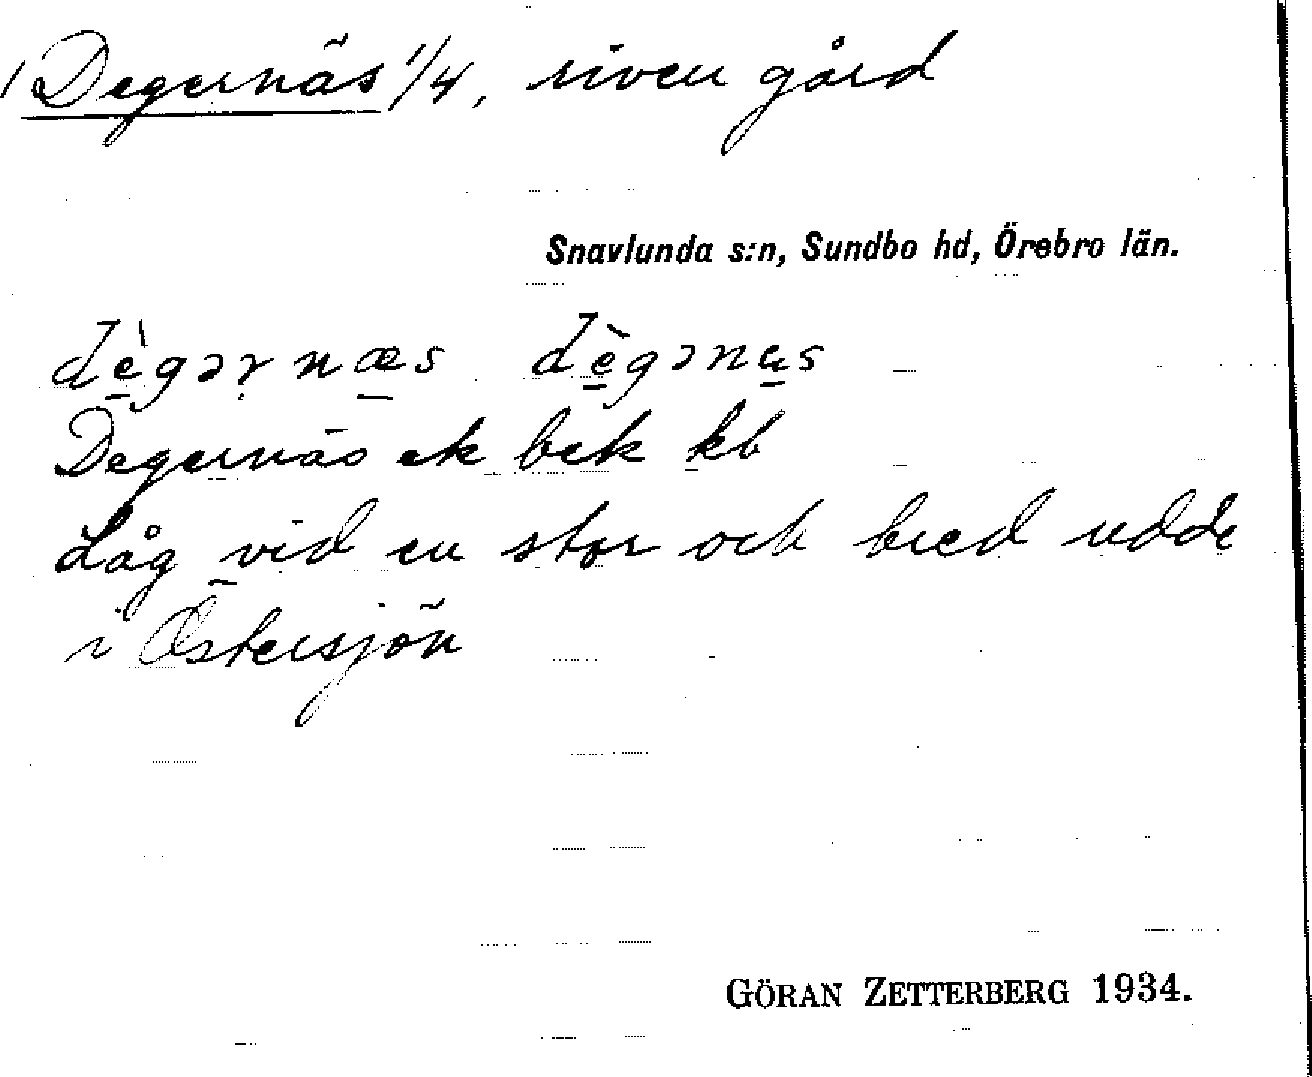 Degernäs 1/4, riven gård
Snavlunda s:n, Sundbo hd, Örebro län.
dègəṛnæs dègənæs
Degernäs ek bek kb
Låg vid en stor och bred udde
i Östersjön
GÖRAN ZETTERBERG 1934.